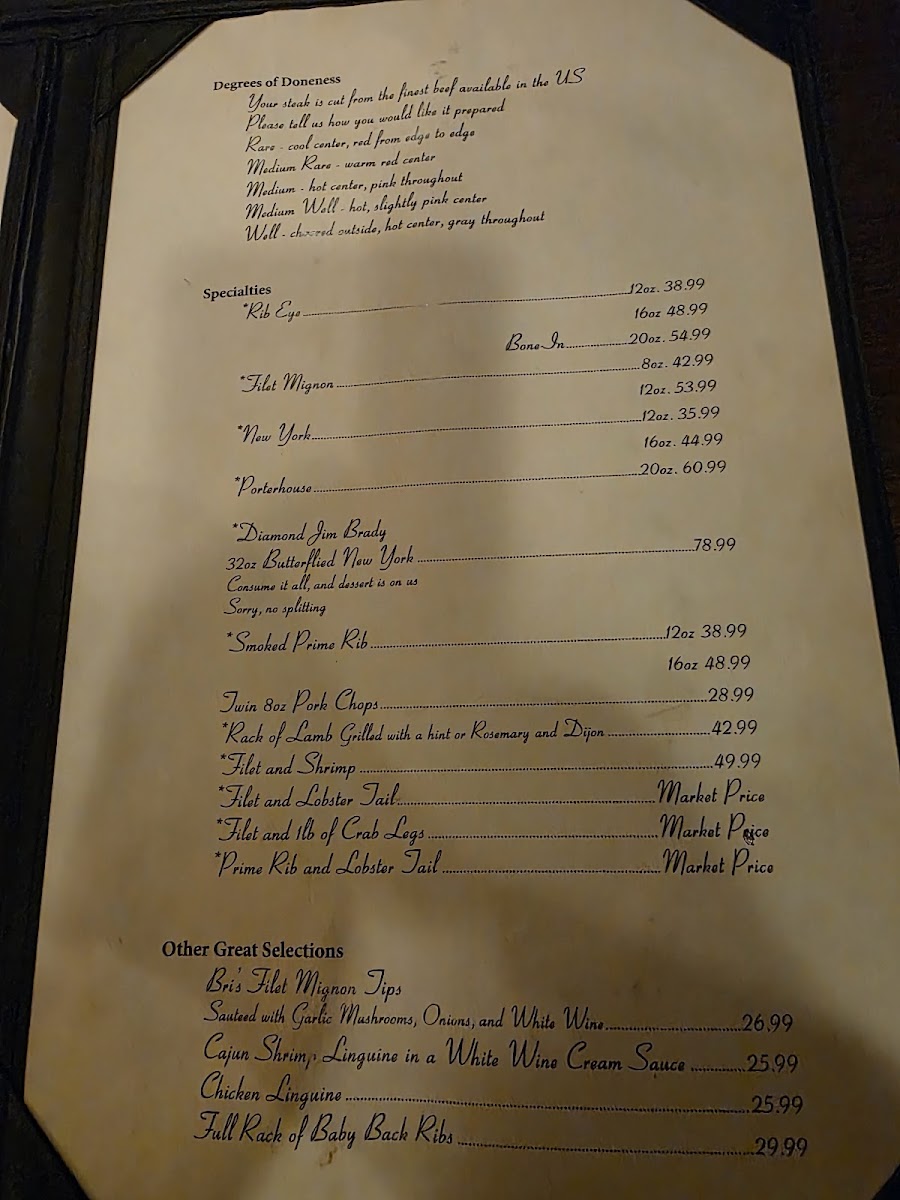 Degrees of Doneness
Your steak is cut from the finest beef available in the US
Please tell us how you would like it prepared
Rare - cool center, red from edge to edge
Medium Rare - warm red center
Medium - hot center, pink throughout
Medium Well - hot, slightly pink center
Well - charred outside, hot center, gray throughout
Specialties
*Rib Eye 12oz. 38.99
16oz 48.99
Bone-In 20oz. 54.99
*Filet Mignon 8oz. 42.99
12oz. 53.99
*New York 12oz. 35.99
16oz. 44.99
*Porterhouse 20oz. 60.99
*Diamond Jim Brady
32oz Butterflied New York 78.99
Consume it all, and dessert is on us
Sorry, no splitting
*Smoked Prime Rib 12oz 38.99
16oz 48.99
Twin 8oz Pork Chops 28.99
*Rack of Lamb Grilled with a hint or Rosemary and Dijon 42.99
*Filet and Shrimp 49.99
*Filet and Lobster Tail Market Price
*Filet and 1lb of Crab Legs Market Price
*Prime Rib and Lobster Tail Market Price
Other Great Selections
Bri's Filet Mignon Tips
Sauteed with Garlic Mushrooms, Onions, and White Wine 26.99
Cajun Shrimp Linguine in a White Wine Cream Sauce 25.99
Chicken Linguine 25.99
Full Rack of Baby Back Ribs 29.99